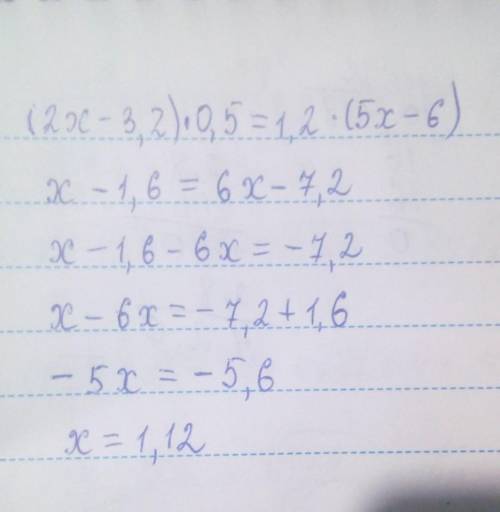 (2x-3,2)·0,5=1,2·(5x-6)
x-1,6=6x-7,2
x-1,6-6x=-7,2
x-6x=-7,2+1,6
-5x=-5,6
x=1,12